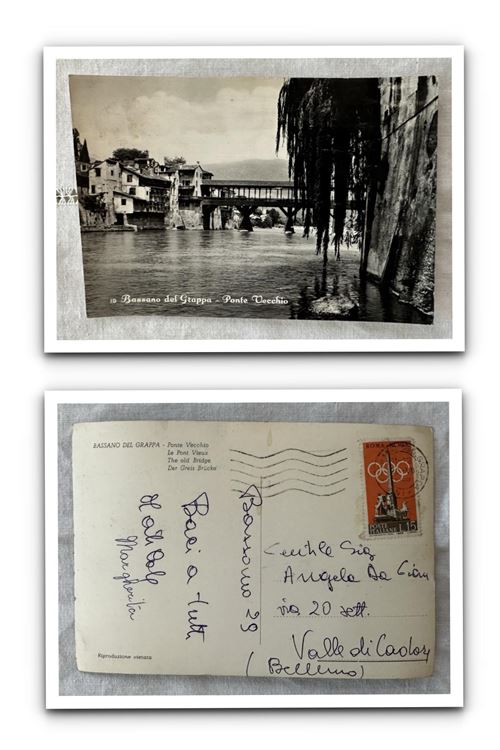 10 Bassano del Grappa - Ponte Vecchio
BASSANO DEL GRAPPA - Ponte Vecchio
Le Pont Vieux
The old Bridge
Der Greis Brücke
Bassano 29
Baci a tutti
Margherita
ROMA
POSTE ITALIANE L.15
Gentile Sig
Angela Da
via 20 sett.
Valle di Cadore
(Belluno)
Riproduzione vietata